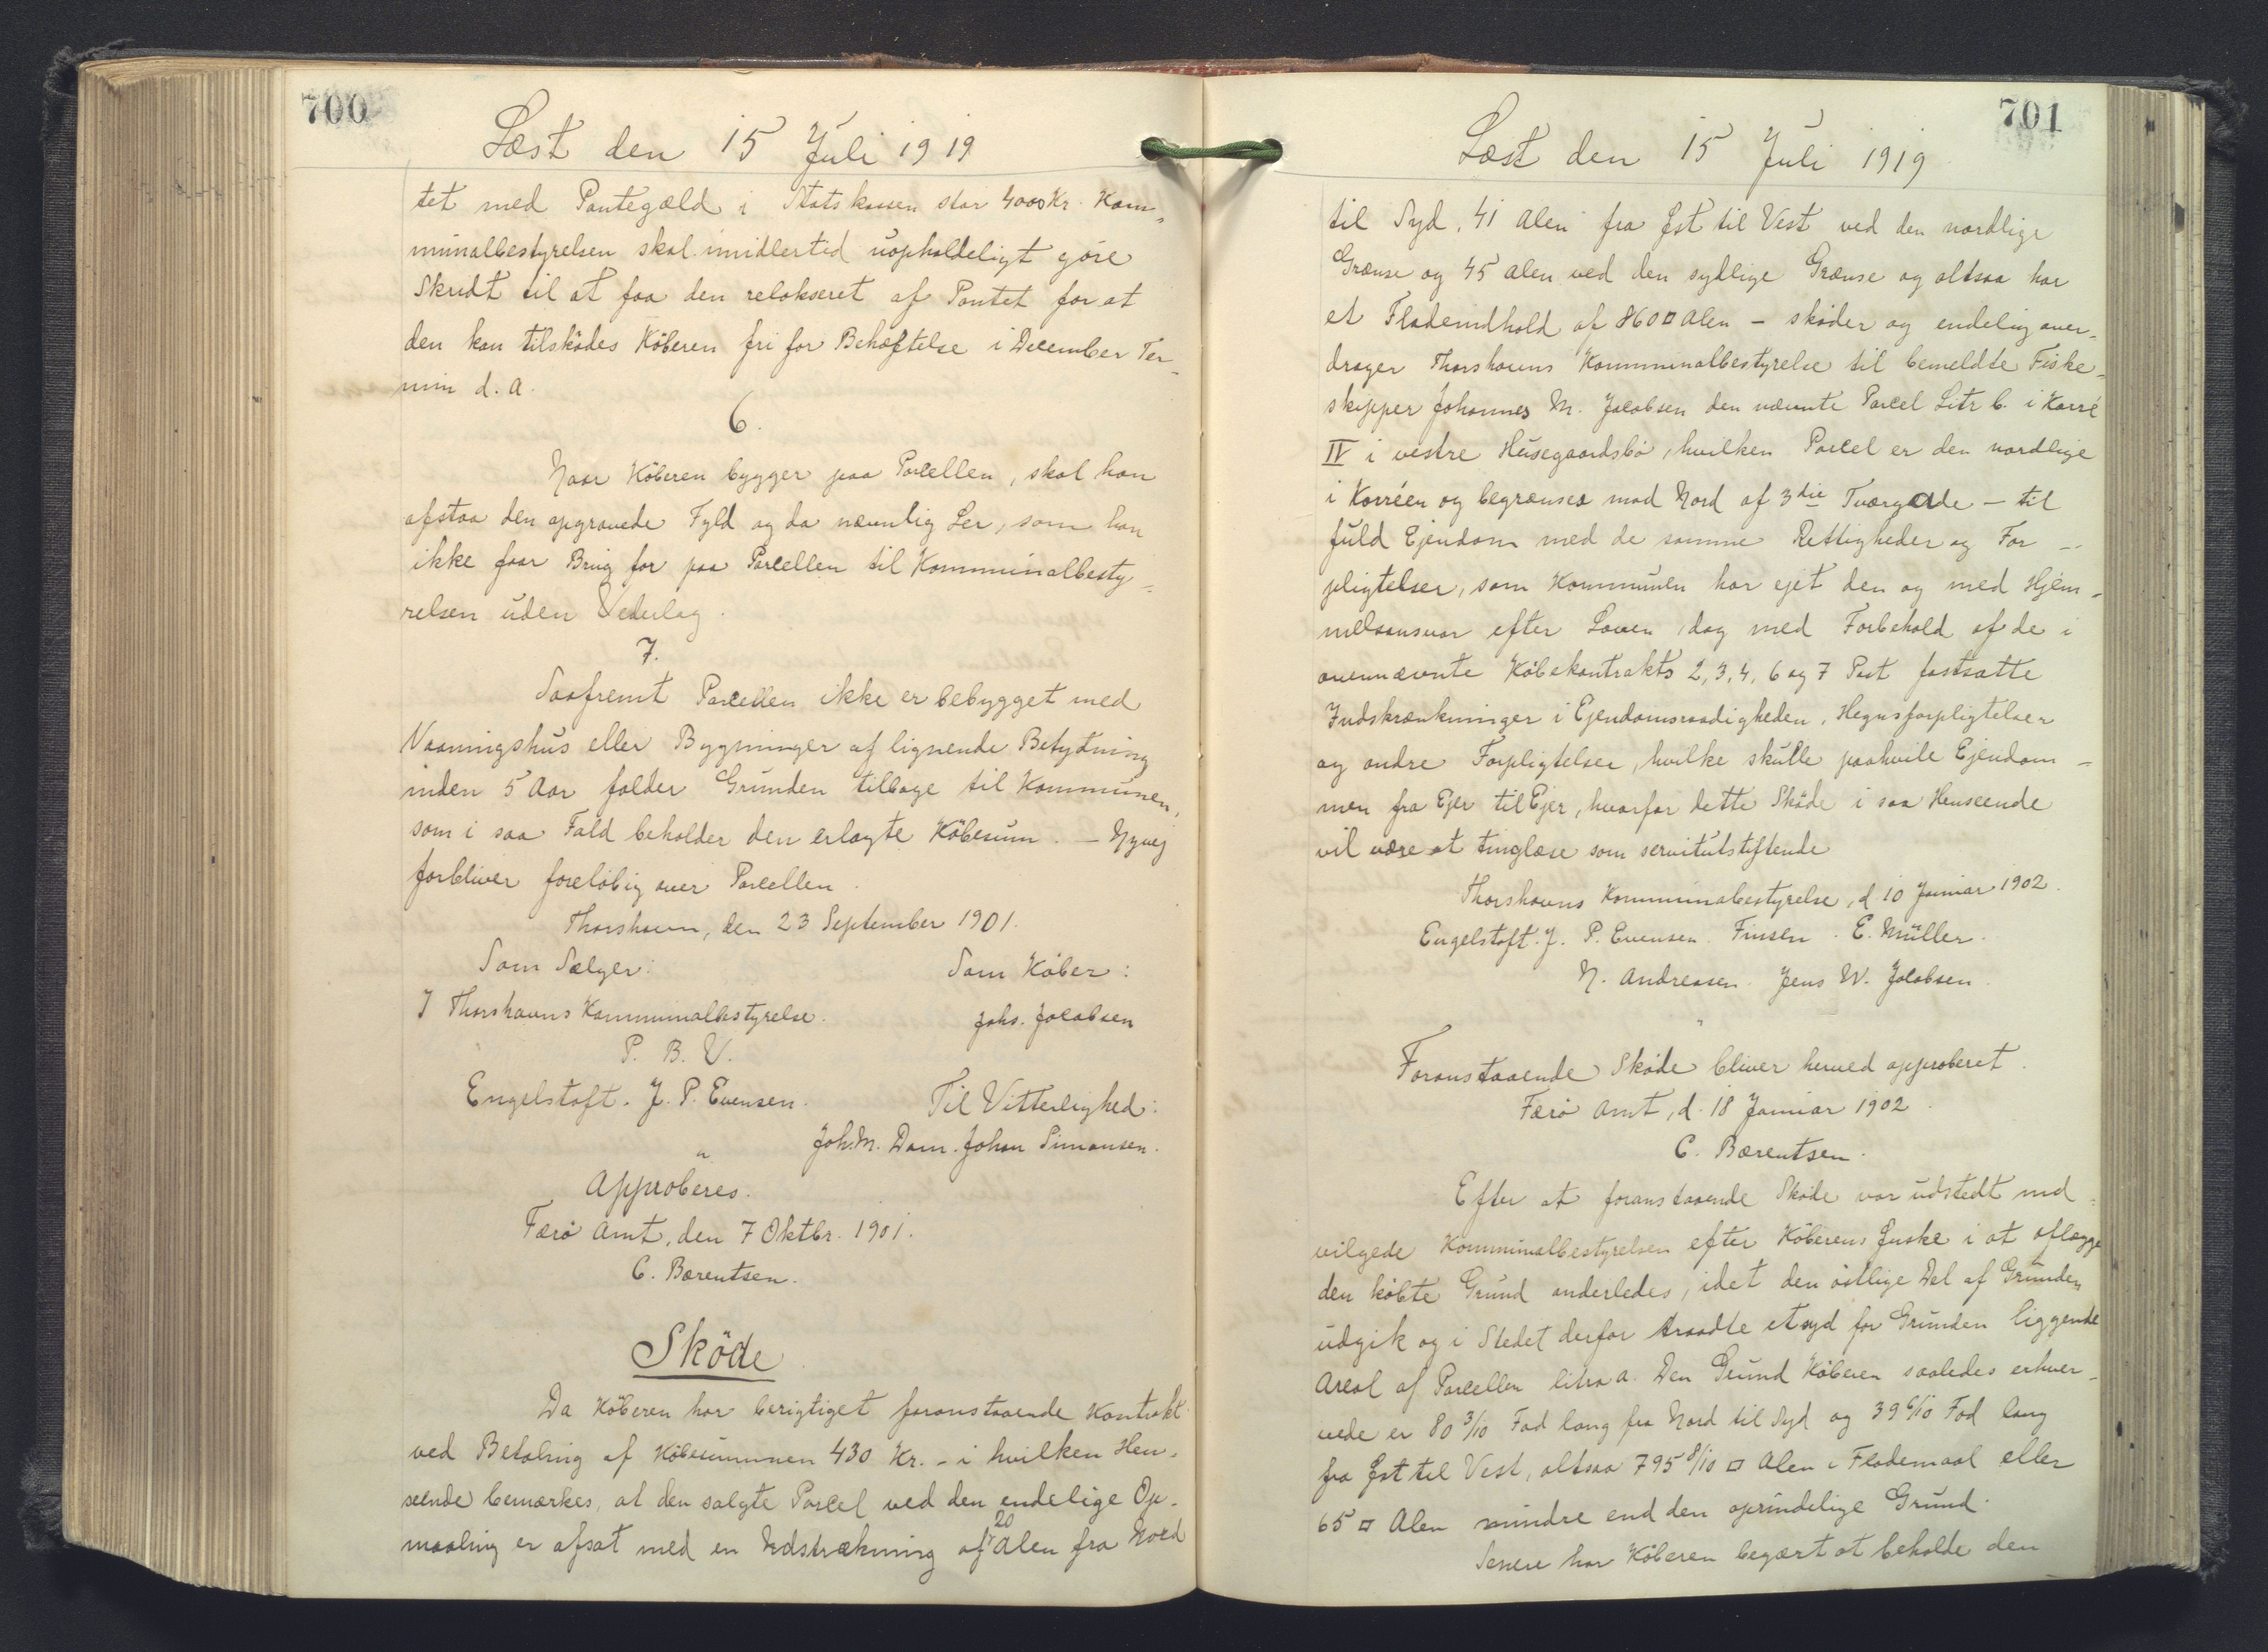 700
Læst den 15 Juli 1919
tet med Pantegæld i Statskassen stor 4000 Kr. Kom„
munalbestyrelsen skal imidlertid uopholdeligt göre
Skridt til at faa den relakseret af Pantet for at
den kan tilsködes Köberen fri for Behæftelse i December Ter„
min d. A.
6.
Naar Köberen bygger paa Parcellen, skal han
afstaa den opgravede Fyld og da navnlig Ler, som han
ikke faar Brug for paa Parcellen til Kommunalbesty„
relsen uden Vederlag.
7.
Saafremt Parcellen ikke er bebygget med
Vaaningshus eller Bygninger af lignende Betydning
inden 5 Aar falder Grunden tilbage til Kommunen,
som i saa Fald beholder den erlagte Köbesum. — Nyvej
forbliver forelöbig over Parcellen.
Thorshavn, den 23 September 1901.
Som Sælger: Som Köber:
I Thorshavns Kommunalbestyrelse. Johs. Jacobsen
P. B. V.
Engelstoft. J. P. Evensen. Til Vitterlighed:
Joh. M. Dam. Johan Simonsen.
"
Approberes.
Færö Amt, den 7 Oktbr. 1901.
C. Bærentsen.
Sköde
Da Köberen har berigtiget foranstaaende Kontrakt
ved Betaling af Köbesummen 430 Kr. - i hvilken Hen„
seende bemærkes, at den solgte Parcel ved den endelige Op„
maaling er afsat med en Udstrækning af 20 Alen fra Nord
701
Læst den 15 Juli 1919
til Syd, 41 Alen fra Øst til Vest ved den nordlige
Grænse og 45 Alen ved den sydlige Grænse og altsaa har
et Fladeindhold af 860 □ Alen - sköder og endelig over„
drager Thorshavns Kommunalbestyrelse til bemeldte Fiske„
skipper Johannes M. Jacobsen den nævnte Parcel Litr b. i Karré
IV i vestre Husegaardsbö, hvilken Parcel er den nordlige
i Karréen og begrænses mod Nord af 3die Tværgade — til
fuld Ejendom med de samme Rettigheder og For„
pligtelser, som Kommunen har ejet den og med Hjem„
melsansvar efter Loven, dog med Forbehold af de i
ovennævnte Köbekontrakts 2, 3, 4, 6 og 7 Post fastsatte
Indskrænkninger i Ejendomsraadigheden, Hegnsforpligtelser
og andre Forpligtelser, hvilke skulle paahvile Ejendom„
men fra Ejer til Ejer, hvorfor dette Sköde i saa Henseende
vil være at tinglæse som servitutstiftende
Thorshavns Kommunalbestyrelse, d. 10 Januar 1902.
Engelstoft. J. P. Evensen. Finsen. E. Müller.
N. Andreasen. Jens W. Jacobsen.
"
Foranstaaende Sköde bliver herved approberet.
Færö Amt, d. 18 Januar 1902.
C. Bærentsen.
Efter at foranstaaende Sköde var udstedt ind„
vilgede Kommunalbestyrelsen efter Köberens Ønske i at aflægge
den köbte Grund anderledes, idet den östlige Del af Grunden
udgik og i Stedet derfor traadte et syd for Grunden liggende
Areal af Parcellen litra a. Den Grund Köberen saaledes erhver„
vede er 80 3/10 Fod lang fra Nord til Syd og 39 6/10 Fod lang
fra Øst til Vest, altsaa 795 8/10 □ Alen i Flademaal eller
65 □ Alen mindre end den oprindelige Grund.
Senere har Köberen begært at beholde den